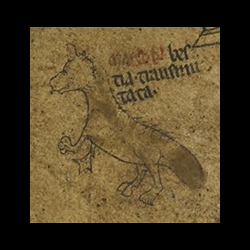 bes
tia · transmu
tata ·